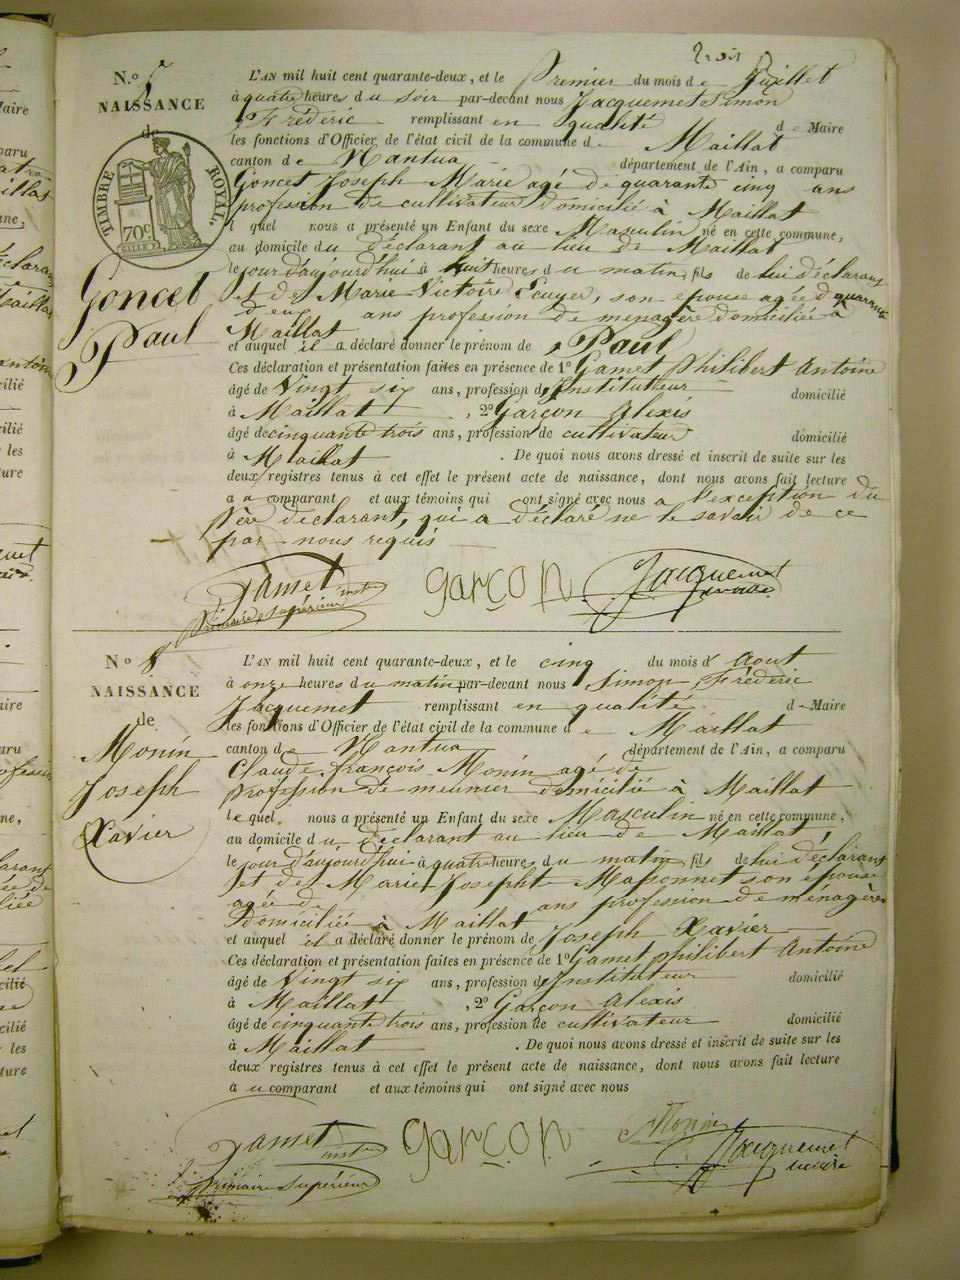 trois
N.o
NAISSANCE
de
TIMBRE ROYAL
70c
Goncet
Paul
L'AN mil huit cent quarante-deux, et le Premier du mois de Juillet
à quatre heures du soir par-devant nous Jacquemet Simon
Fréderic remplissant en qualité de Maire
les fonctions d'Officier de l'état civil de la commune de Maillat
canton de Nantua département de l'Ain, a comparu
Goncet Joseph Marie agé de quarante cinq ans
profession de cultivateur domicilié à Maillat
lequel nous a présenté un Enfant du sexe Masculin né en cette commune,
au domicile du déclarant au lieu de Maillat
le jour d'aujourd'hui à huit heures du matin, fils de lui déclarant
et de Marie Victoire Ecuyer, son epouse agée de quarante
deux ans profession de menagère domiciliée à
Maillat
et auquel il a déclaré donner le prénom de Paul
Ces déclaration et présentation faites en présence de 1o Gamet Philibert Antoine
âgé de Vingt six ans, profession de Instituteur domicilié
à Maillat, 2o Garçon Alexis
âgé de cinquante trois ans, profession de cultivateur domicilié
à Maillat. De quoi nous avons dressé et inscrit de suite sur les
deux registres tenus à cet effet le présent acte de naissance, dont nous avons fait lecture
au comparant et aux témoins qui ont signé avec nous a l'exception du
père declarant, qui a déclaré ne le savoir de ce
par nous requis
Gamet inst
Primaire supérieur
garçon
Jacquemet
maire
N.o 8
NAISSANCE
de
Monin
Joseph
Xavier
L'AN mil huit cent quarante-deux, et le cinq du mois d'Aout
à onze heures du matin par-devant nous Simon Fréderic
Jacquemet remplissant en qualité de Maire
les fonctions d'Officier de l'état civil de la commune de Maillat
canton de Nantua département de l'Ain, a comparu
Claude françois Monin agé de
profession de meunier domicilié à Maillat
lequel nous a présenté un Enfant du sexe Masculin né en cette commune,
au domicile du déclarant au lieu de Maillat,
le jour d'aujourd'hui à quatre heures du matin, fils de lui déclarant
et de Marie Josephte Massonnet son épouse
agée de ans profession de ménagère
domiciliée à Maillat
et auquel il a déclaré donner le prénom de Joseph Xavier
Ces déclaration et présentation faites en présence de 1o Gamet philibert Antoine
âgé de Vingt six ans, profession de Instituteur domicilié
à Maillat, 2o Garçon Alexis
âgé de cinquante trois ans, profession de cultivateur domicilié
à Maillat. De quoi nous avons dressé et inscrit de suite sur les
deux registres tenus à cet effet le présent acte de naissance, dont nous avons fait lecture
au comparant et aux témoins qui ont signé avec nous
Gamet inst
Primaire supérieur
garçon
Monin
Jacquemet
maire